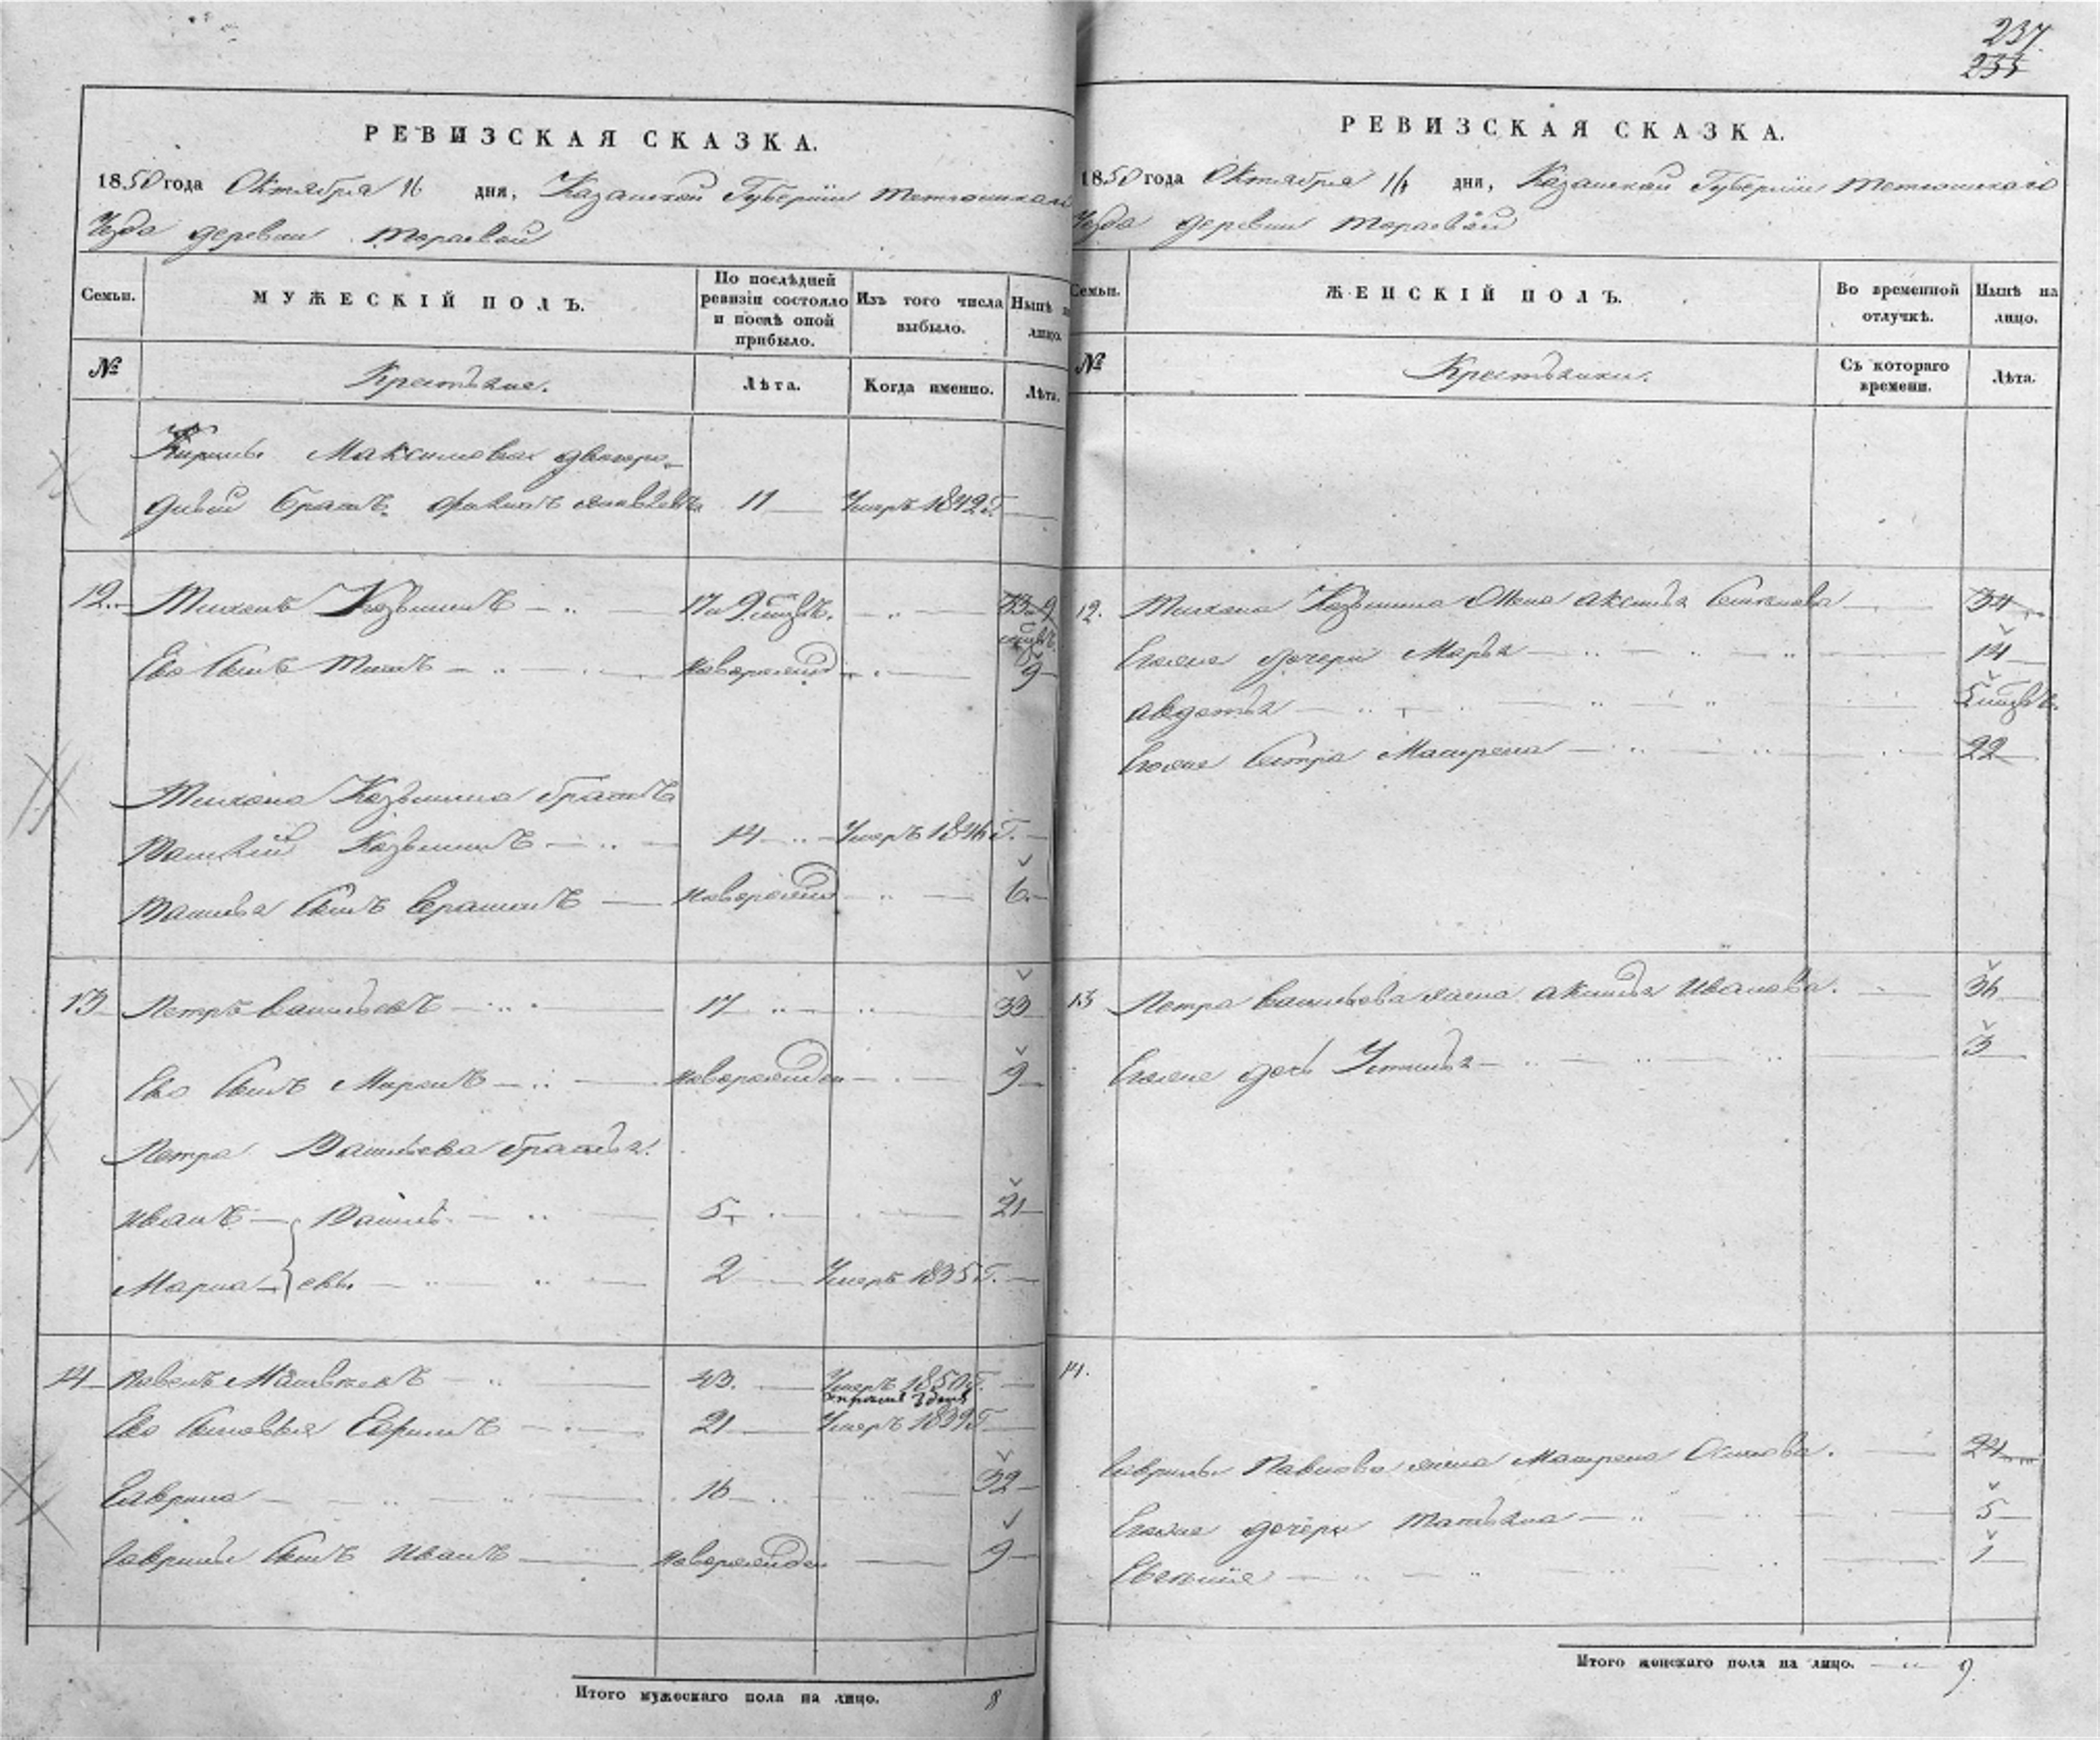 237.
235
РЕВИЗСКАЯ СКАЗКА.
1850 года Октября 16 дня, Казанской Губернии Тетюшскаго
Уезда деревни Тараевой
Семьи.
МУЖЕСКІЙ ПОЛЪ.
По послѣдней ревизіи состояло и послѣ оной прибыло.
Изъ того числа выбыло.
Нынѣ на лицо.
№
Крестьяне.
Лѣта.
Когда именно.
Лѣта.
Максимова двоюро-
дный братъ 11 Умеръ 1842 г.
12. Тихонъ Козьминъ 17 и 9. 33 и 9
Его сынъ Титъ новорожд 9
Тихона Козьмина братъ
Василій Козьминъ 14 Умеръ 1846 г.
Василья сынъ Герасимъ новорожд 6.
13 Петръ Васильевъ 17 33
Его сынъ Миронъ новорожден 9
Петра Васильева братья.
Иванъ Василь- 5 21
Марка евы 2 Умеръ 1835 г.
14 Павелъ Матвѣевъ 43. Умеръ 1850 г.
Его сыновья 21 Умеръ 1839 г
Гаврила 16 32
Гаврилы сынъ Иванъ новорожден 9
Итого мужескаго пола на лицо. 8
РЕВИЗСКАЯ СКАЗКА.
1850 года Октября 16 дня, Казанской Губерніи Тетюшскаго
Уезда деревни Тараевой
Семьи.
ЖЕНСКІЙ ПОЛЪ.
Во временной отлучкѣ.
Нынѣ на лицо.
№
Крестьянки.
Съ котораго времени.
Лѣта.
12. Тихона Козьмина жена Аксинья 34
Егоже дочери Марья 14
Авдотья
Егоже сестра Матрена 22
13 Петра Васильева жена Аксинья Иванова. 36
Егоже дочь Устинья 3
14.
Гаврилы Павлова жена Матрена Осипова. 24
Егоже дочери Татьяна 5
Евгенія 1
Итого женскаго пола на лицо. 9